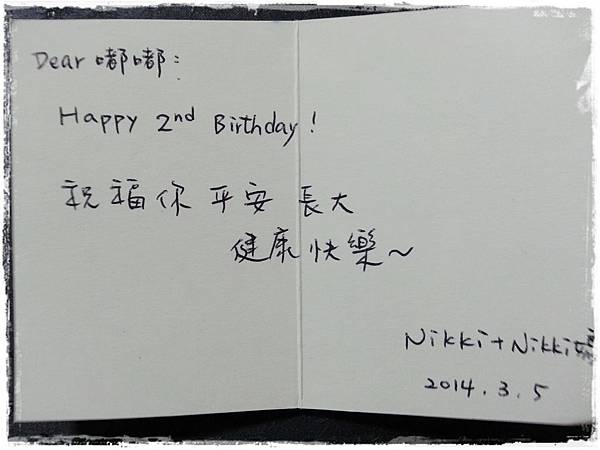 Dear 嘟嘟:
Happy 2nd Birthday!
祝福你 平安 長大
健康 快樂~
Nikki + Nikki
2014.3.5